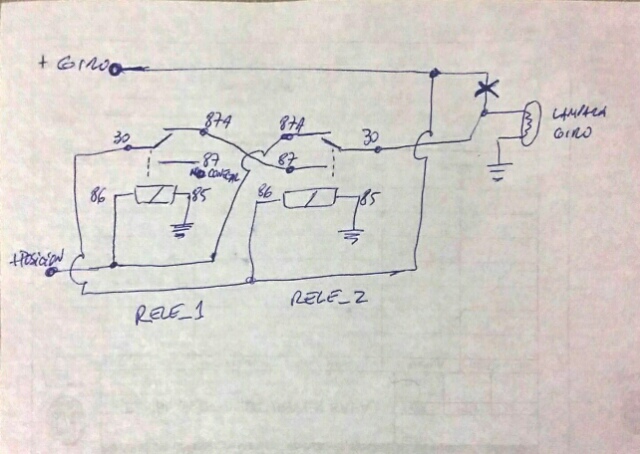 + GIRO
30
87A
87A
30
LAMPARA
GIRO
87
NO CONECTAR
87
86
85
86
85
+POSICIÓN
RELE_1
RELE_2